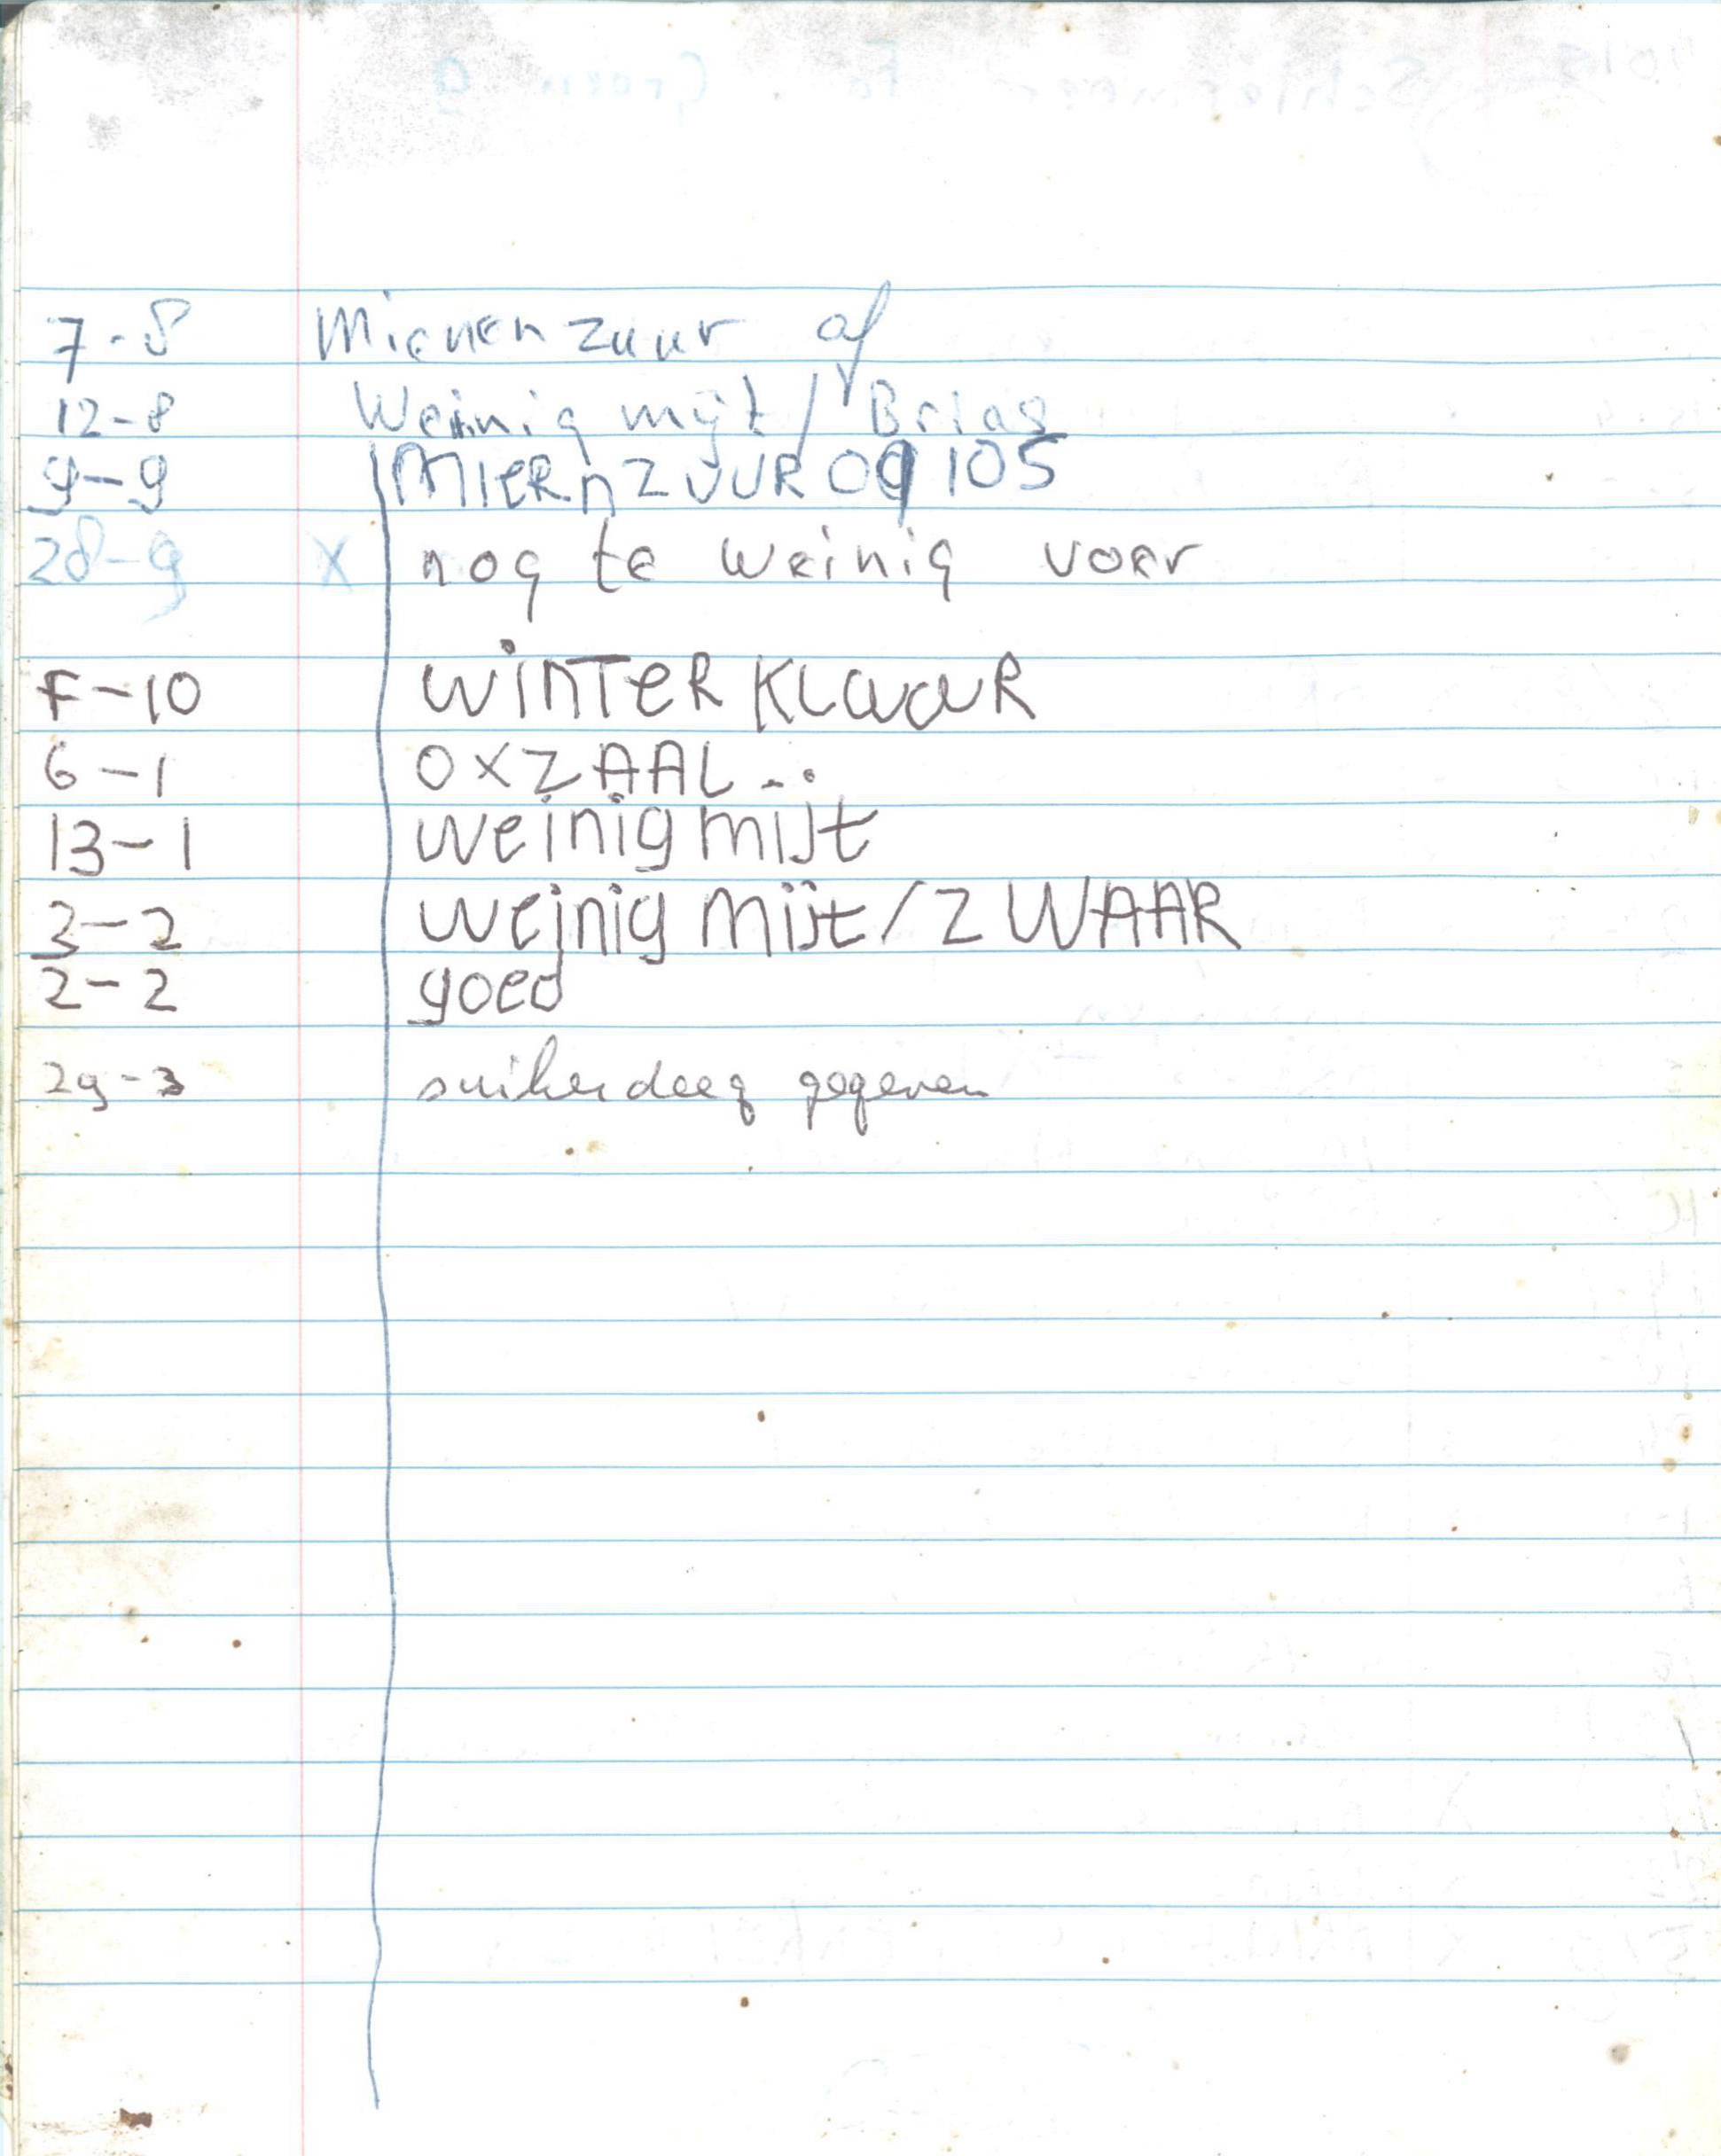 7-8 Mierenzuur af
12-8 Weinig mijt / Brias
9-9 MIERnZUUR 09 105
28-9 X nog te weinig voer
F-10 WINTER KLaaR
6-1 OXZAAL..
13-1 weinig mijt
3-2 weinig mijt/ZWAAR
2-2 goed
29-3 suikerdeeg gegeven